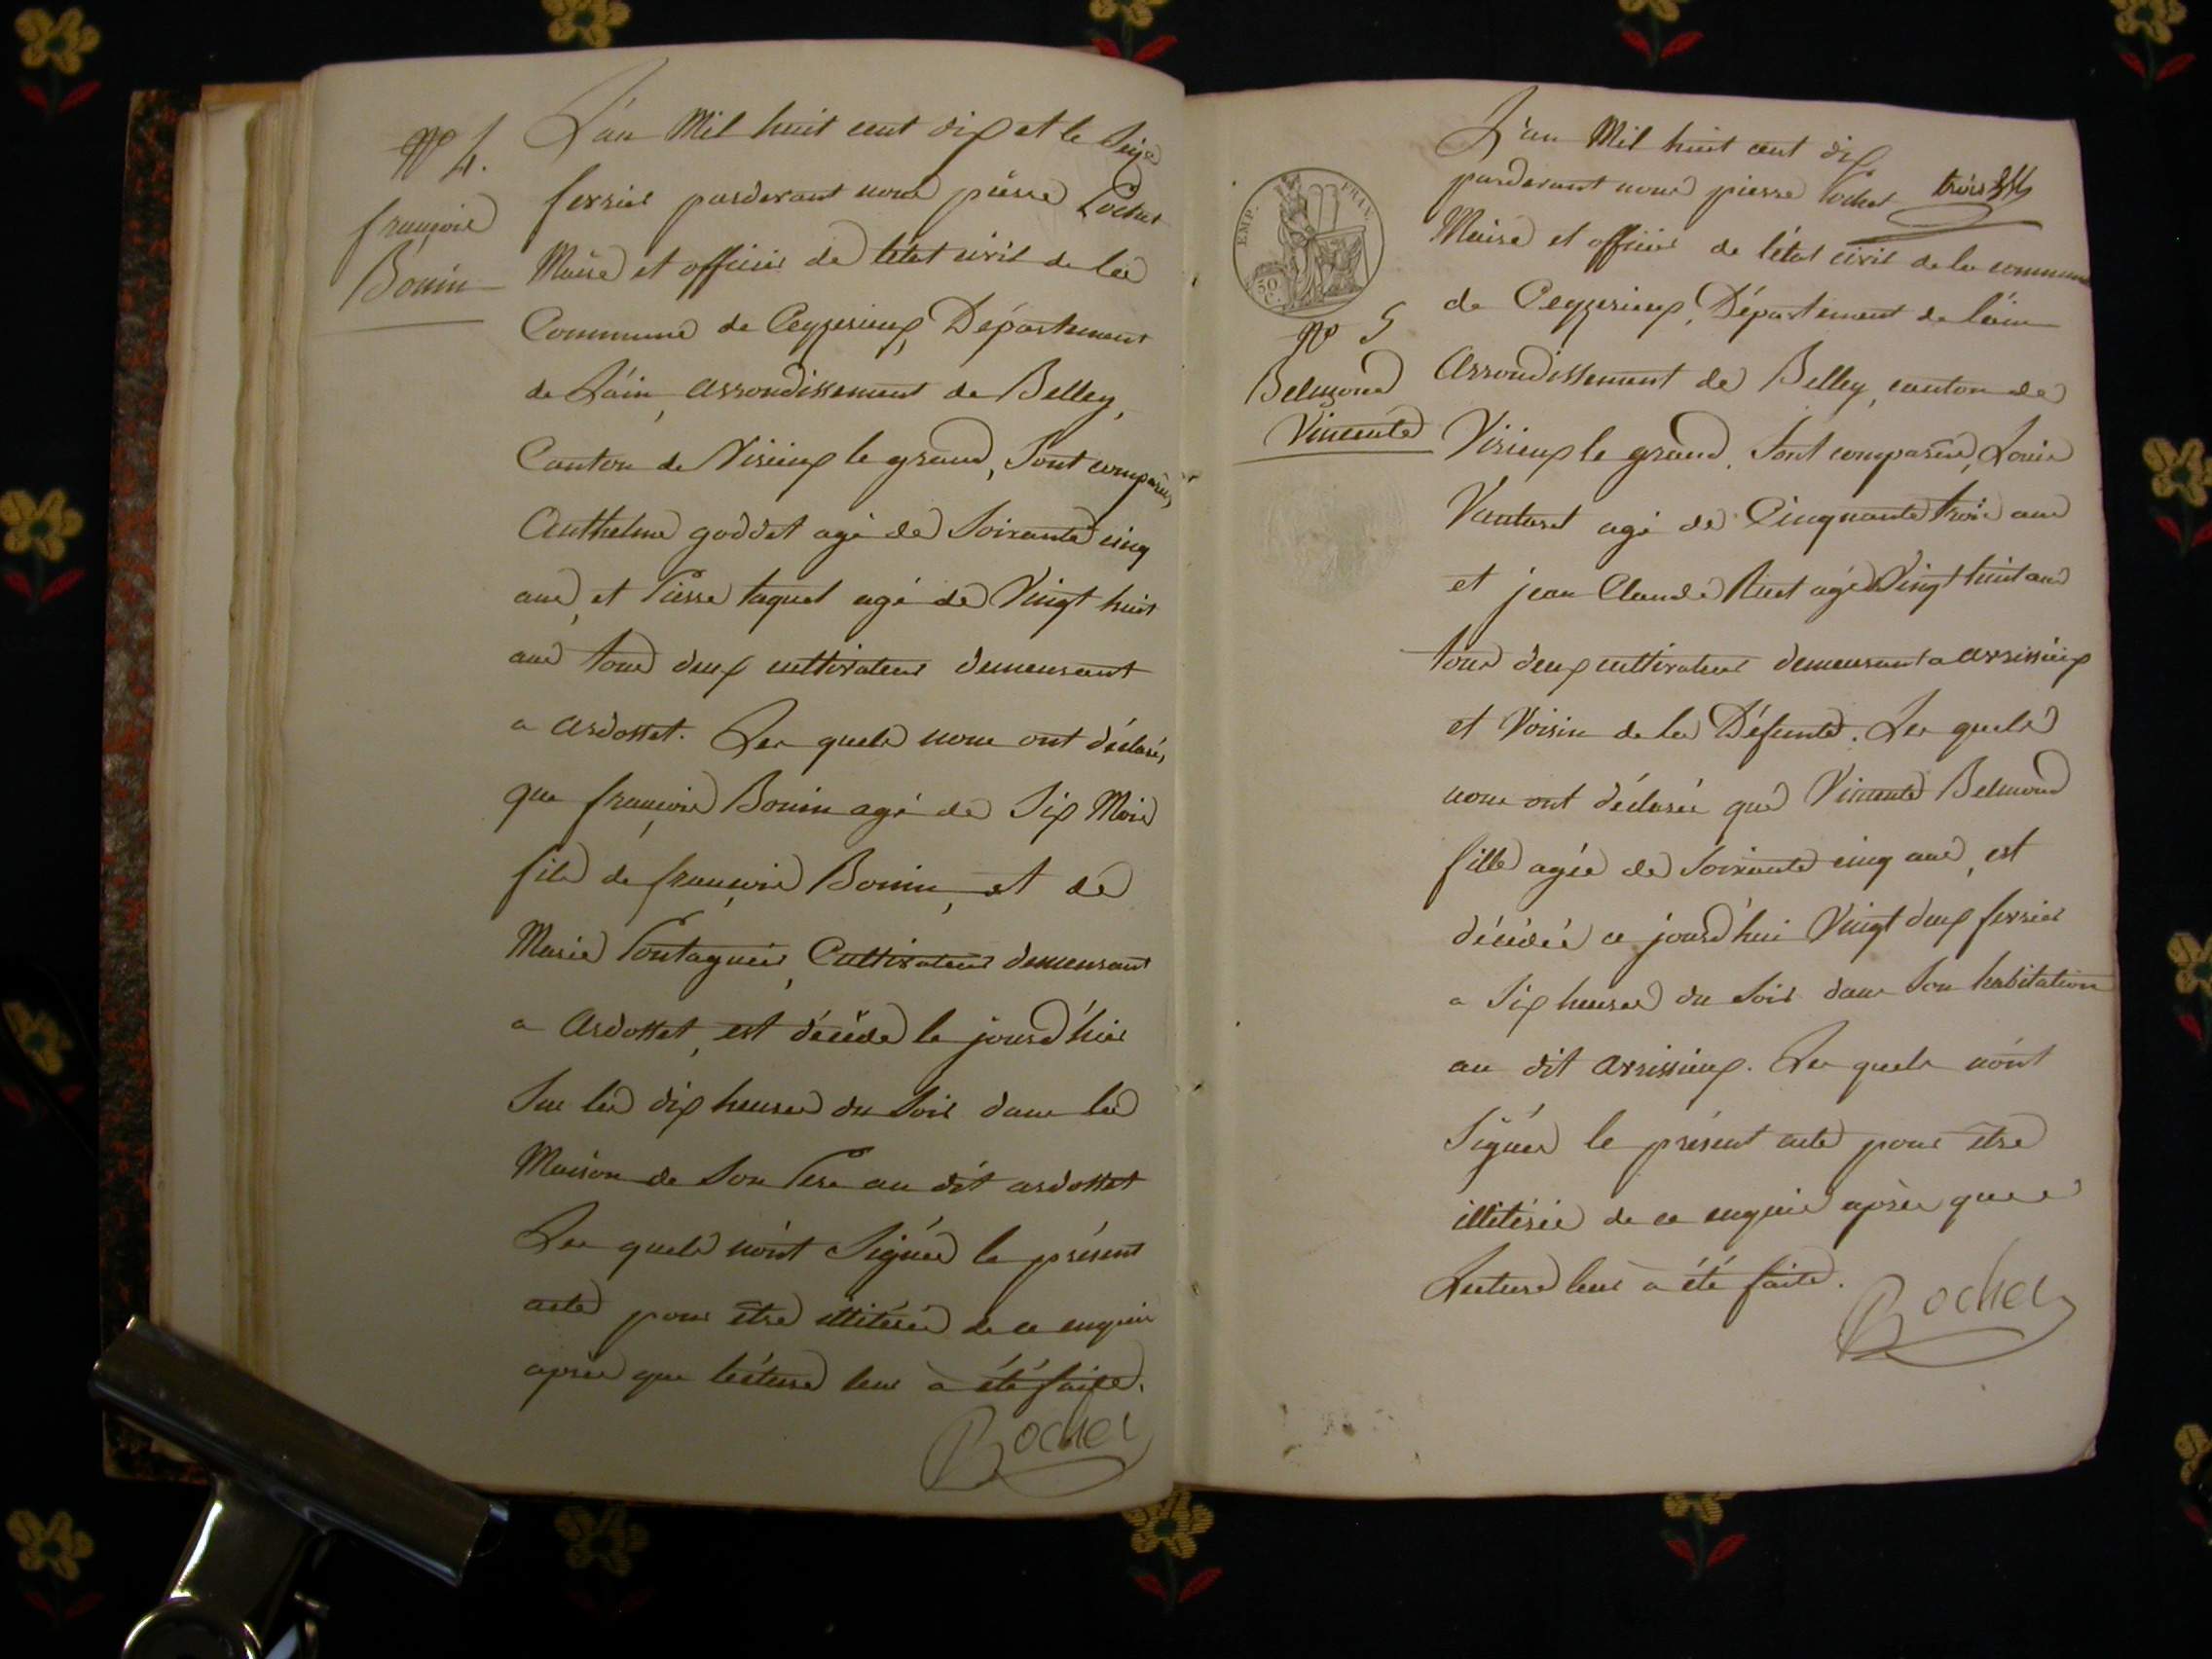 No 4.
françois
Bonin
L'án Mil huit cent dix et le Seize
fevrier pardevant nous pierre Rochet
Maire et officier de l'état civil de la
Commune de Ceyzerieux, Département
de L'ain, arrondissement de Belley,
Canton de Virieux le grand, Sont comparus,
Anthelme goddet agé de Soixante cinq
ans, et Pierre taquet agé de Vingt huit
ans tous deux cultivateurs demeurant
a ardosset. Les quels nous ont déclarés,
que françois Bonin agé de Six Mois
fils de françois Bonin, et de
Marie Pontagnier, Cultivateurs demeurant
a Ardosset, est décéde le jourd'hier
Sur les dix heures du Soir dans la
Maison de Son Pere au dit ardosset
Les quels n'ont Signés le présent
acte pour être illitérés de ce enquis
après que lécture leur à été faite.
Rochet
EMP. FRAN.
50 C.
No 5
Belmond
Vincente
L'an Mil huit cent dix
pardevant nous pierre Rochet trois
Maire et officier de l'état civil de la commune
de Ceyzerieux, Département de l'ain
Arrondissement de Belley, canton de
Virieux le grand. Sont comparus, Louis
Vautaret agé de Cinquante trois ans
et jean Claude agé Vingt huit ans
tous deux cultivateurs demeurant a avrissieux
et Voisin de la Défunte. Les quels
nous ont déclarés que Vincente Belmond
fille agée de Soixante cinq ans, est
décédée ce jourd'hui Vingt deux fevrier
a Six heures du Soir dans Son habitation
au dit avrissieux. Les quels n'ont
Signés le présent acte pour être
illitérés de ce enquis après que
Lecture leur à été faite.
Rochet